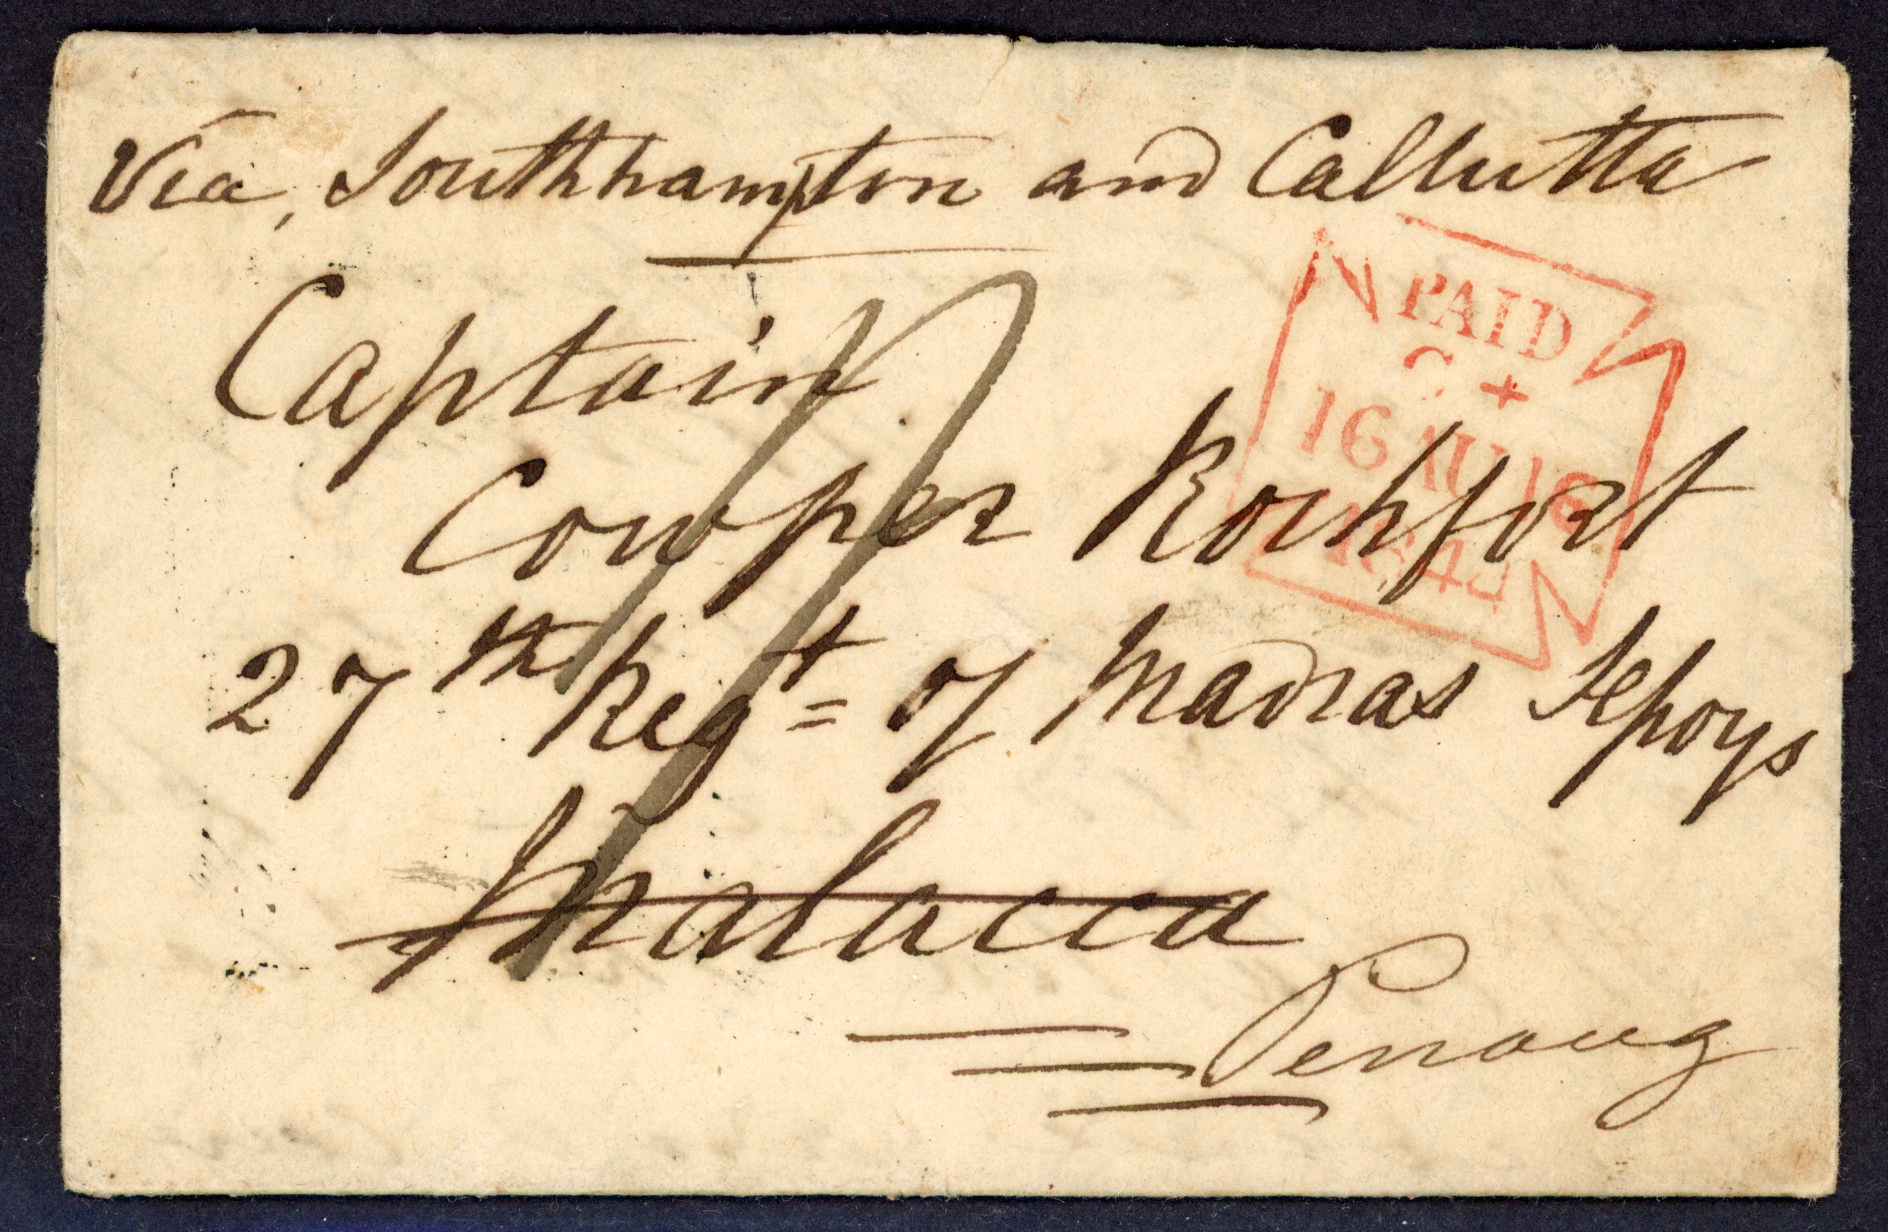 Via, Southhampton and Callutta
Captain
Cowper Rochfort
27th Regt = of Madras Sepoys
Malacca
Penang
PAID
16 AU 16
1847